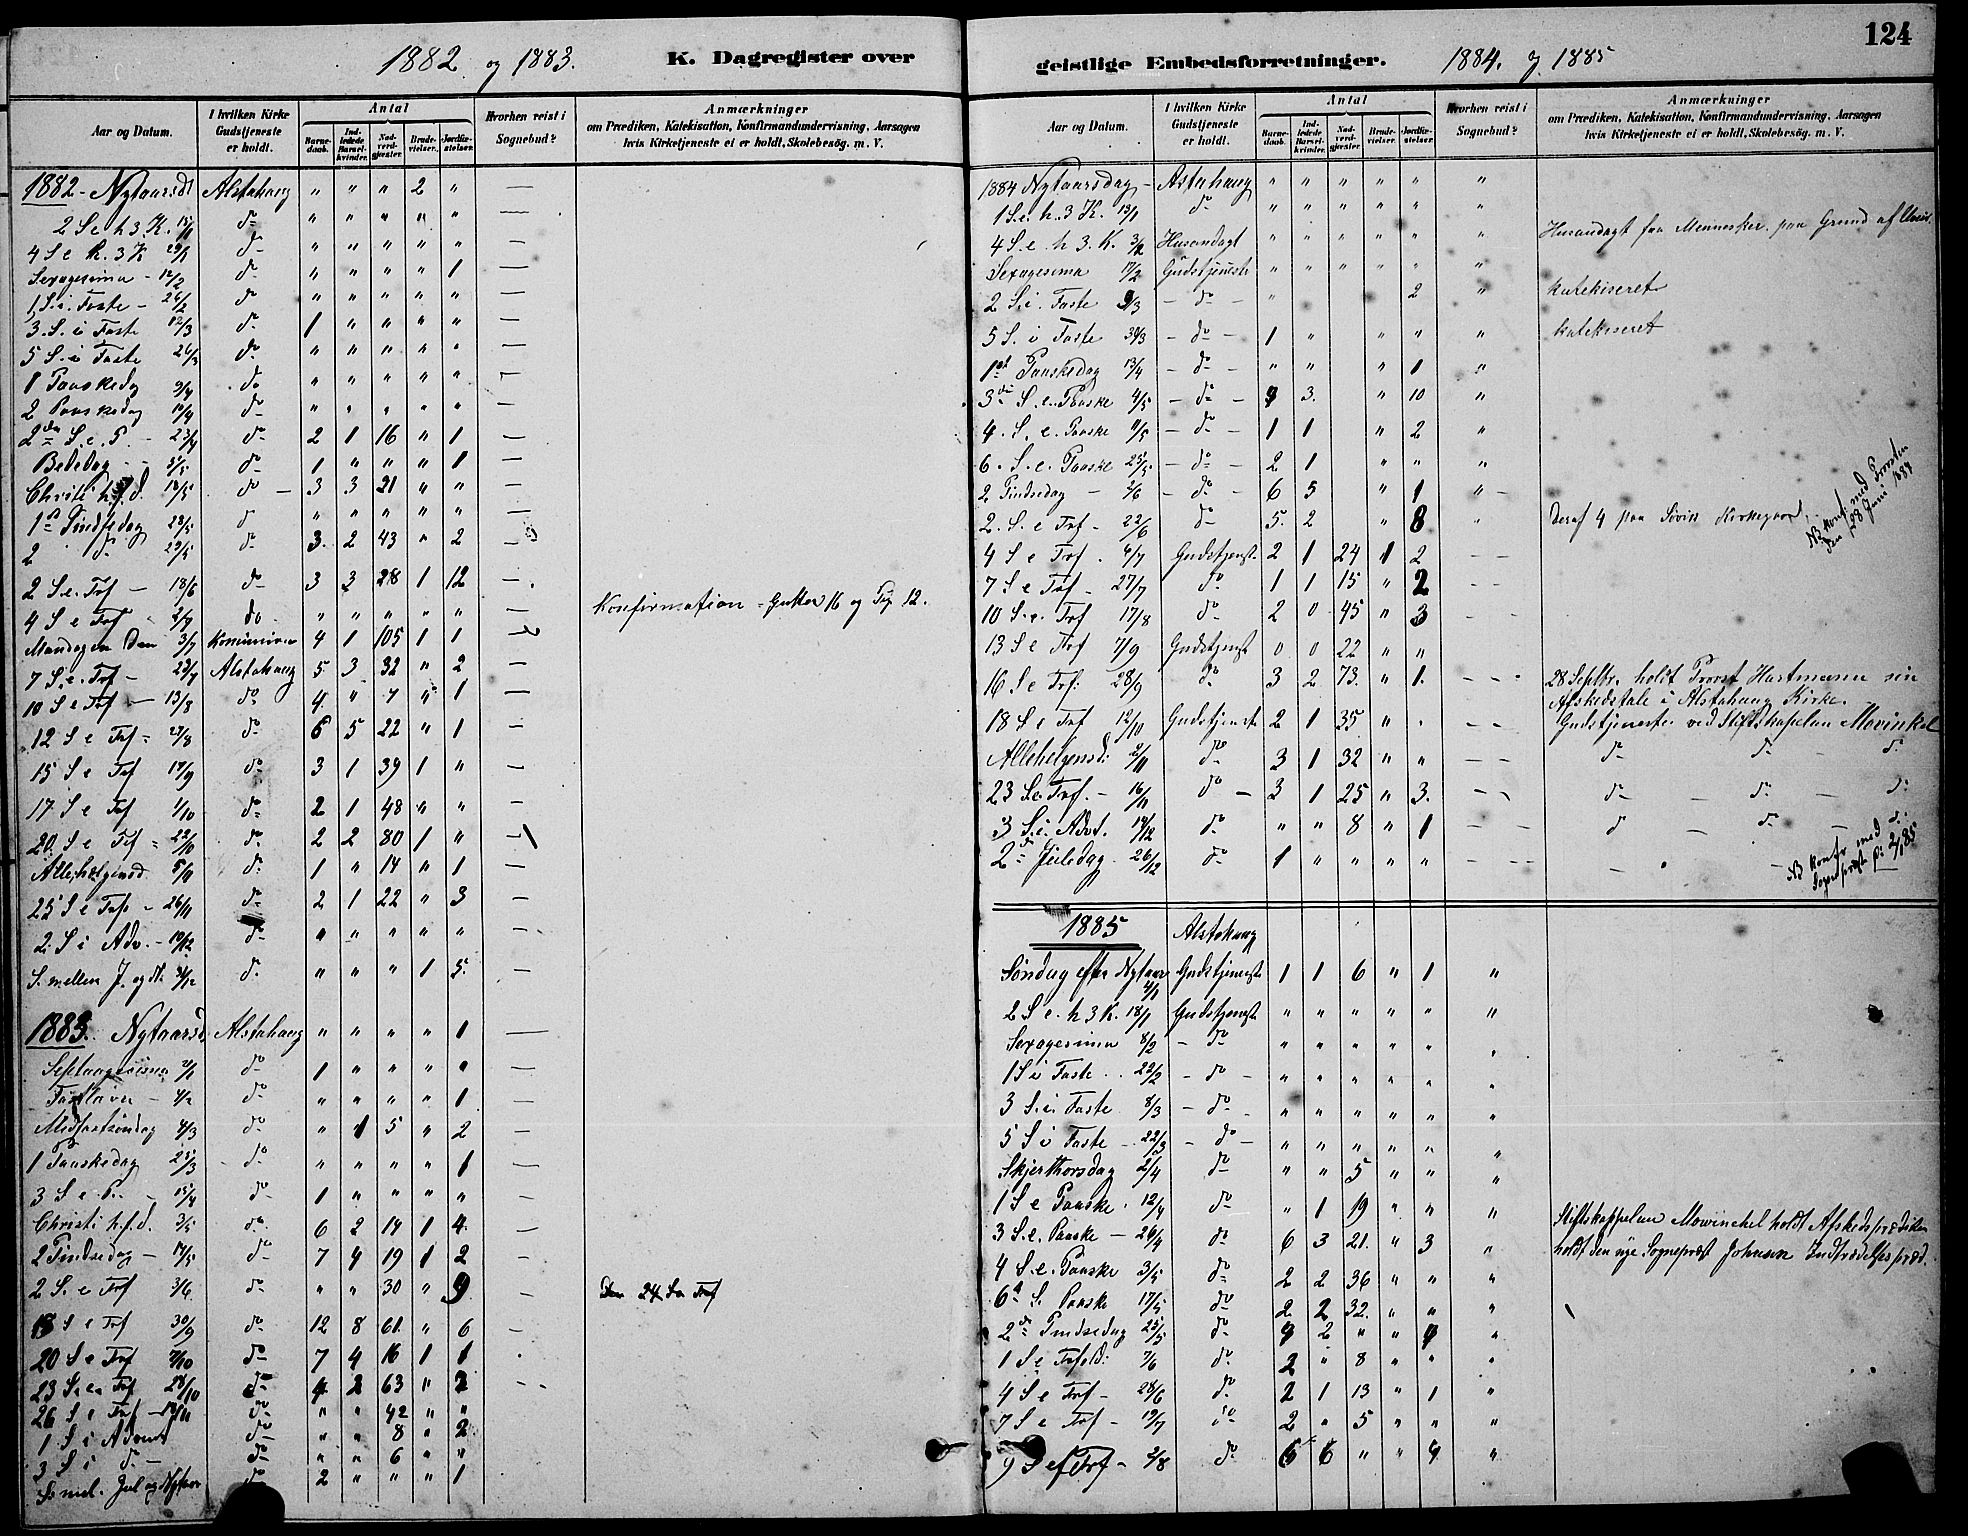 124
1882 og 1883.
K. Dagregister over
Aar og Datum.
I hvilken Kirke Gudstjeneste er holdt.
Antal
Barnedaab.
Indledede Barselkvinder.
Nadverdgjæster.
Brudevielser.
Jordfæstelser.
Hvorhen reist i Sognebud?
Anmærkninger
om Prædiken, Katekisation, Konfirmandundervisning, Aarsagen
hvis Kirketjeneste ei er holdt, Skolebesög. m. V.
1882 - Nytaarsd. Alstahaug " " " 2 " —
2 S e h 3 K. 15/1 do " " " " " —
4 S e h. 3 K 29/1 do " " " " " —
Sexagesima - 12/2 do " " " " 1 —
1 S. i. Faste - 26/2 do " " " " " —
3. S. i Faste 12/3 do 1 " " " " —
5 S. i Faste 26/3 do " " " " " —
1 Paaskedag 9/4 do " " " " " —
2 Paaskedag 10/4 do " " " " " —
2den S. e. P. - 23/4 do 2 1 16 " 1 —
Bededag - 5/5 do 1 " " " 1 —
Christi h.f.d. 18/5 do — 3 3 21 " " —
1ste Pindsedag 28/5 do " " " " " —
2 do 29/5 do 3. 2 43 " 2 —
2 S. e. Trf — 18/6 do 3 3 28 1 12 —
4 S e Trf 2/7 do " " " " " — Konfirmation - Gutter 16 og Pig 12.
Mandagen den 3/7 Komunion 4 1 105 1 1 —
7 S. e. Trf - 23/7 Alstahaug 5 3 32 " 2 —
10 S e Trf — 13/8 do 4. " 7 " 1 —
12 S e Trf - 27/8 do 6 5 22 " 1 —
15 S e Trf 17/9 do 3 1 39 1 " —
17. S e Trf 1/10 do 2 1 48 " " —
20. S e Trf - 22/10 do 2 2 80 1 " —
Allehelgensd. 5/11 do 1 " 14 " 1 —
25 S e Trf - 26/11 do 2 1 22 " 3 —
2. S i Adv. - 10/12 do " " " " " —
S. mellem J. og N. 31/12 do " " " 1 5. —
1883. Nytaarsd. Alstahaug " " " " 1 —
Septuagesima 21/1 do 1 " " " " —
Fastlavn - 4/2 do " " " " 1 —
Midfastsöndag 4/3 do " 1 5 " 2 —
1 Paaskedag 25/3 do " " " " 1 —
3 S e P. - 15/4 do 1 " " " " —
Christi h.f.d. 3/5 do 6 2 14 1 4. —
2 Pindsedag — 14/5 do 7 4 19 1 2 —
2 S. e Trf 3/6 do " " 30 " 9 — Den 24 Se Trf
19 S e Trf 30/9 do 12 8 61. " 6 —
20 S e Trf 7/10 do 7 4 16 1 1
23 S. e. Trf 28/10 do 4 2 63 " 2 —
26 S e Trf - 18/11 do " " 42 " "
1 S i Advent do " " 8 " 2
3 S i d — do " " 6 " "
S mel. Jul og Nytaar do 2 " " " 1
geistlige Embedsforretninger.
1884. og 1885
Aar og Datum.
I hvilken Kirke Gudstjeneste er holdt.
Antal
Barnedaab.
Indledede Barselkvinder.
Nadverdgjæster.
Brudevielser.
Jordfæstelser.
Hvorhen reist i Sognebud?
Anmærkninger
om Prædiken, Katekisation, Konfirmandundervisning, Aarsagen
hvis Kirketjeneste ei er holdt, Skolebesög. m. V.
1884 Nytaarsdag - Alstahaug " " " " " "
1 S. e. h. 3 K. 13/1 do " " " " " "
4 S. e. h 3. K. 3/2 Husandagt " " " " " " Husandagt faa Mennesker paa Grund af
Sexagesima 17/2 Gudstjeneste " " " " " "
2 S. i. Faste 9/3 - do - " 2 " Katekiseret
5 S. i Faste 30/3 - do - 1 " " " " Katekiseret
1st Paaskedag 13/4 - do - " " " 1 "
3die S. e. Paaske 4/5 - do - 9 3. " 10 "
4. S. e. Paaske 11/5 - do - 1 1 " 2 "
6. S. e. Paaske 25/5 - do - 2 1 " " "
2 Pindsedag - 2/6 - do - 6 5 " 1 "
2. S. e Trf - 22/6 do 5. 2 " 8 " Deraf 4 paa Kirkegaard
NB. Konf. med Provsten den 28 Juni 1884
4 S e Trf. 6/7 Gudstjenst. 2 1 24 1 2 - -
7 S e Trf - 27/7 do 1 1 15 " 2 - -
10 S. e. Trf 17/8 do 2 0 45 " 3 - -
13 S e Trf 7/9 Gudstjenst 0 0 22 " "
16 S e Trf: 28/9 do 3 2 73. " 1. - - 28 Septbr. holdt Provst Hartmann sin
Afskedstale i Alstahaug Kirke.
18 S e Trf 12/10 Gudstjenst 2 1 35 " . - - Gudstjeneste ved Stiftskapelan Movinkel
Allehelgensd: 2/11 do 3 1 32 " " - - do - do - do
23 S e. Trf. - 16/11 do - 3 1 25 " 3. - - do - do - do
3 S. i. Advt. 14/12 do " " 8 " 1 - - do - do - do
2den Juledag. 26/12 do 1 " " " " - -
NB Konfr med Sogneprest 2/1 85
1885 Alstahaug
Söndag efter Nytaar 4/1 Gudstjenst 1 1 6 " 1 "
2 S e. h 3 K. 18/1 Gudstjenst. " " " " " "
Sexagesima 8/2 - do " " " " " "
1 S i Faste .. 22/2 - do - " " " " " "
3 S. i. Faste 8/3 - do - " " " " " "
5 S i Faste - 22/3 - do - " " " " " "
Skjærthorsdag 2/4 do " " 5 " " "
1 S e Paaske. 12/4 do " 1 19 " " "
3 S. e. Paaske - 26/4 do 6 3 21. " 3 " Stiftskappelan Movinckel holdt Afskedsprædiken
4 S. e. Paaske 3/5 do 2 2 36 " " " holdt den nye Sogneprest Johnsen Indtrædelsespræd.
6te S. Paaske 17/5 do 2 2 32. " " "
2den Pindsedag 25/5 do 4 2 " " 4 "
1 S e Trfold: 7/6 do 2 " 8 " " "
4 S e Trf - 28/6 do 2 1 13 " 1 "
7 S e Trf - 19/7 do 2 " 5 " " "
9 S ef Trf - 2/8 do 6 6 " " 4 "